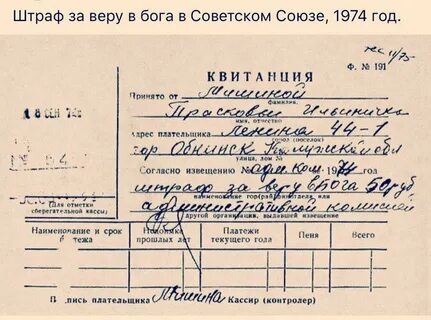 Штраф за веру в бога в Советском Союзе, 1974 год.
Ф. № 191
КВИТАНЦИЯ
Принято от Мишиной
фамилия,
Прасковьи Ильиничны
имя, отчество
Адрес плательщика Ленина 44-1
город (поселок)
гор Обнинск Калужской обл
улица, дом №
Согласно извещению адм. ком. 1974 год
штраф за веру в Бога 50 руб
административной комиссией
другой организации, выдавшей извещение
18 СЕН 74
(Для отметки
сберегательной кассы)
Наименование и срок платежа
Недоимка прошлых лет
Платежи текущего года
Пеня
Всего
Подпись плательщика Мишина Кассир (контролер)